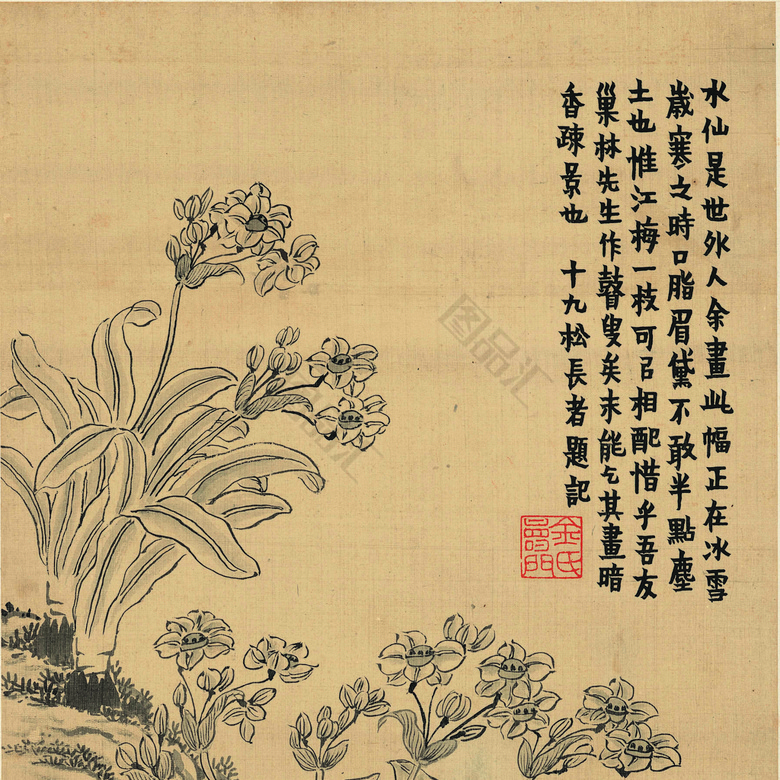 水仙是世外人余畫此幅正在冰雪
歲寒之時口脂眉黛不敢半點塵
土也惟江梅一枝可㠯相配惜乎吾友
巢林先生作瞽叟矣未能乞其畫暗
香疎景也 十九松長者題記
金氏壽門
图品汇
图品汇